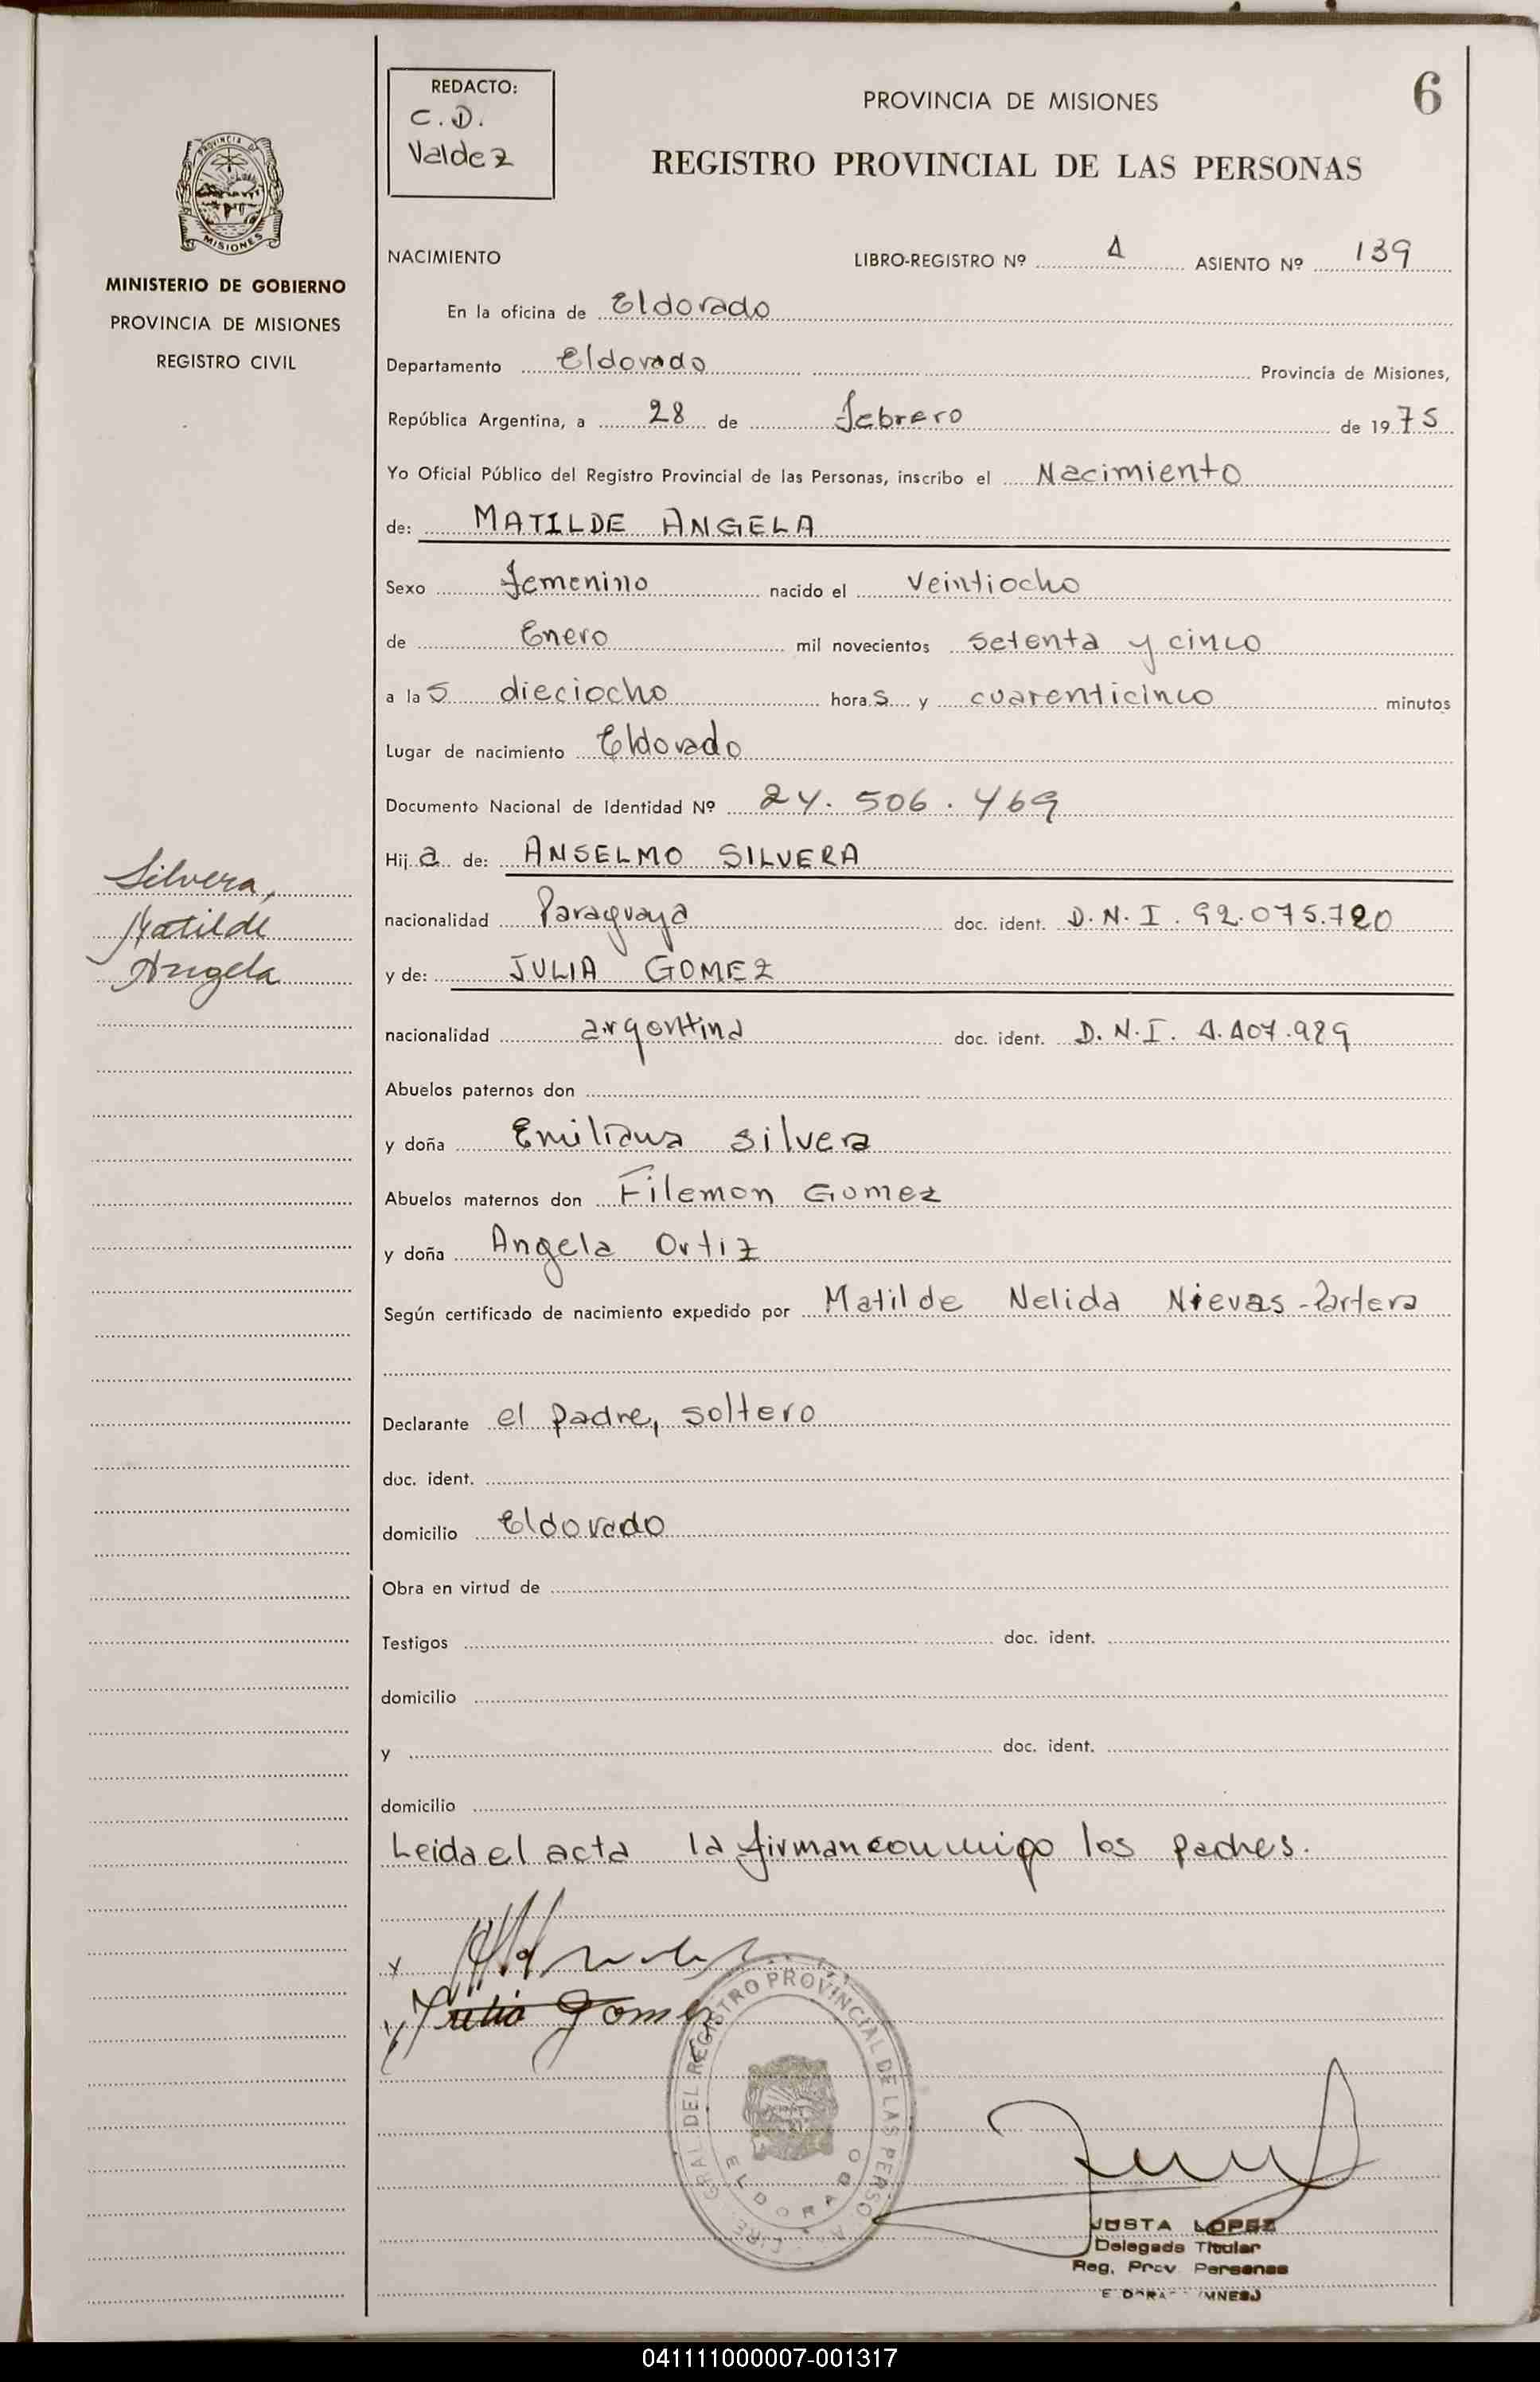 REDACTO:
C.D.
Valdez
PROVINCIA DE MISIONES
6
REGISTRO PROVINCIAL DE LAS PERSONAS
PROVINCIA DE
MISIONES
MINISTERIO DE GOBIERNO
PROVINCIA DE MISIONES
REGISTRO CIVIL
NACIMIENTO LIBRO-REGISTRO Nº 1 ASIENTO Nº 139
En la oficina de Eldorado
Departamento Eldorado Provincia de Misiones,
República Argentina, a 28 de febrero de 1975
Yo Oficial Público del Registro Provincial de las Personas, inscribo el Nacimiento
de: MATILDE ANGELA
Sexo femenino nacido el veintiocho
de Enero mil novecientos setenta y cinco
a las dieciocho horas y cuarenticinco minutos
Lugar de nacimiento Eldorado
Documento Nacional de Identidad Nº 24.506.469
Hija de: ANSELMO SILVERA
Silvera,
Matilde
Angela
nacionalidad Paraguaya doc. ident. D.N.I. 92.075.720
y de: JULIA GOMEZ
nacionalidad argentina doc. ident. D.N.I. 1.107.989
Abuelos paternos don
y doña Emiliana Silvera
Abuelos maternos don Filemon Gomez
y doña Angela Ortiz
Según certificado de nacimiento expedido por Matilde Nelida Nievas-Partera
Declarante el padre, soltero
doc. ident.
domicilio Eldorado
Obra en virtud de
Testigos doc. ident.
domicilio
y doc. ident.
domicilio
Leida el acta la firman conmigo los padres.
x
Julia Gomez
GRAL DEL REGISTRO PROVINCIAL DE LAS PERSO
ELDORADO
JUSTA LOPEZ
Delegada Titular
Reg. Prov Personas
041111000007-001317